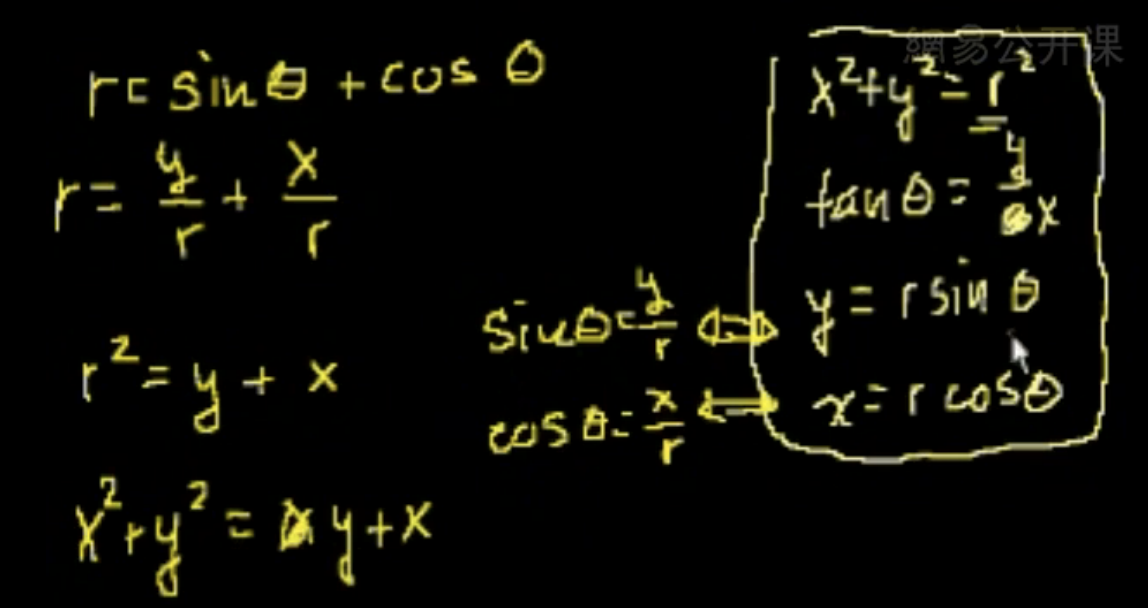 網易公开课
r = sin θ + cos θ
r = y/r + x/r
r² = y + x
x² + y² = y + x
sin θ = y/r ⇔
cos θ = x/r ⇔
x² + y² = r²
tan θ = y/x
y = r sin θ
x = r cos θ